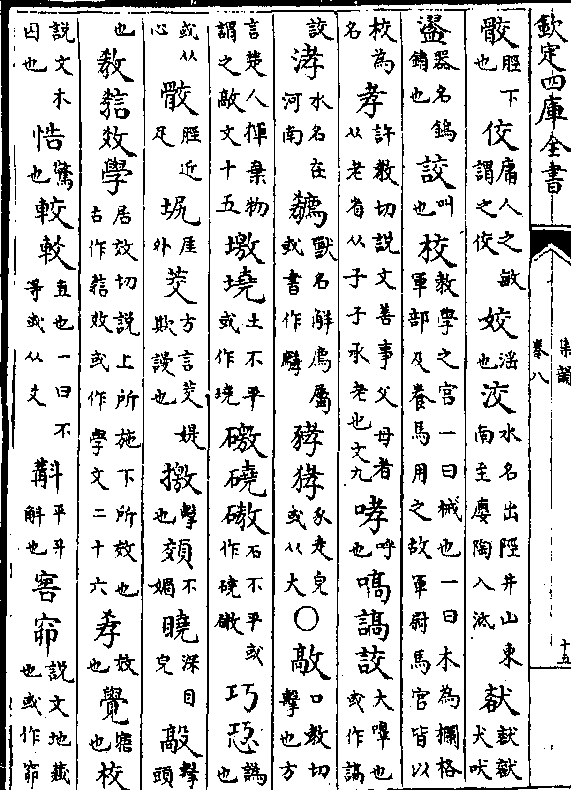 欽定四庫全書
集韻
卷八
十五
骹脛下也佼庸人之敏謂之佼姣滛也洨水名出陘井山東南至廮陶入泜獻獻犬吠
器名鎢銷也詨叫也校教學之宫一曰械也一曰木為欄格軍部及養馬用之故軍尉馬官皆以
校為名孝許教切說文善事父母者从老省从子子承老也文九哮呼也嗃謞詨大嘷也或作謞
詨涍水名在河南獸名解廌屬或書作豕走皃或从犬○敲口教切擊也方
言楚人揮棄物謂之敲文十五墽墝土不平或作墝礉磽磝石不平或作磽磝巧譌也
或从心骹脛近足厓外方言媞欺謾也撽擊也不媚深目皃敲擊頭
也敎效學居效切說上所施下所效也古作效或作學文二十六放也覺寤也校
說文木囚也悎驚也較直也一曰不等或从爻斠平斗斛也窖窌說文地藏也或作窌